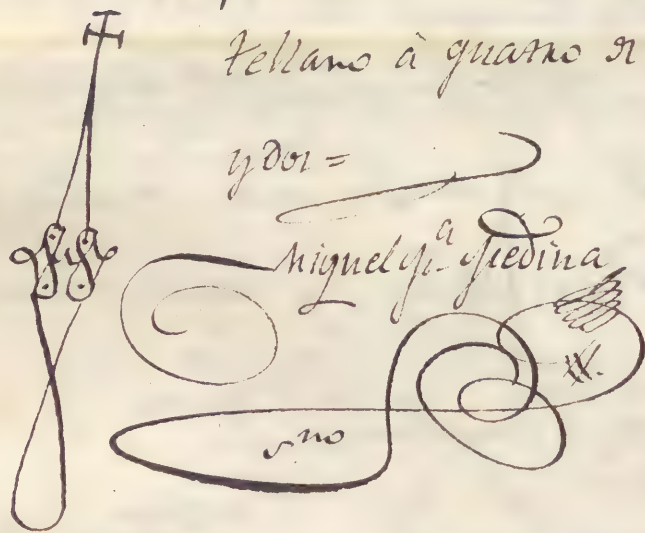 tellano à quatro
y dos =
Miguel Gª Medina
sno